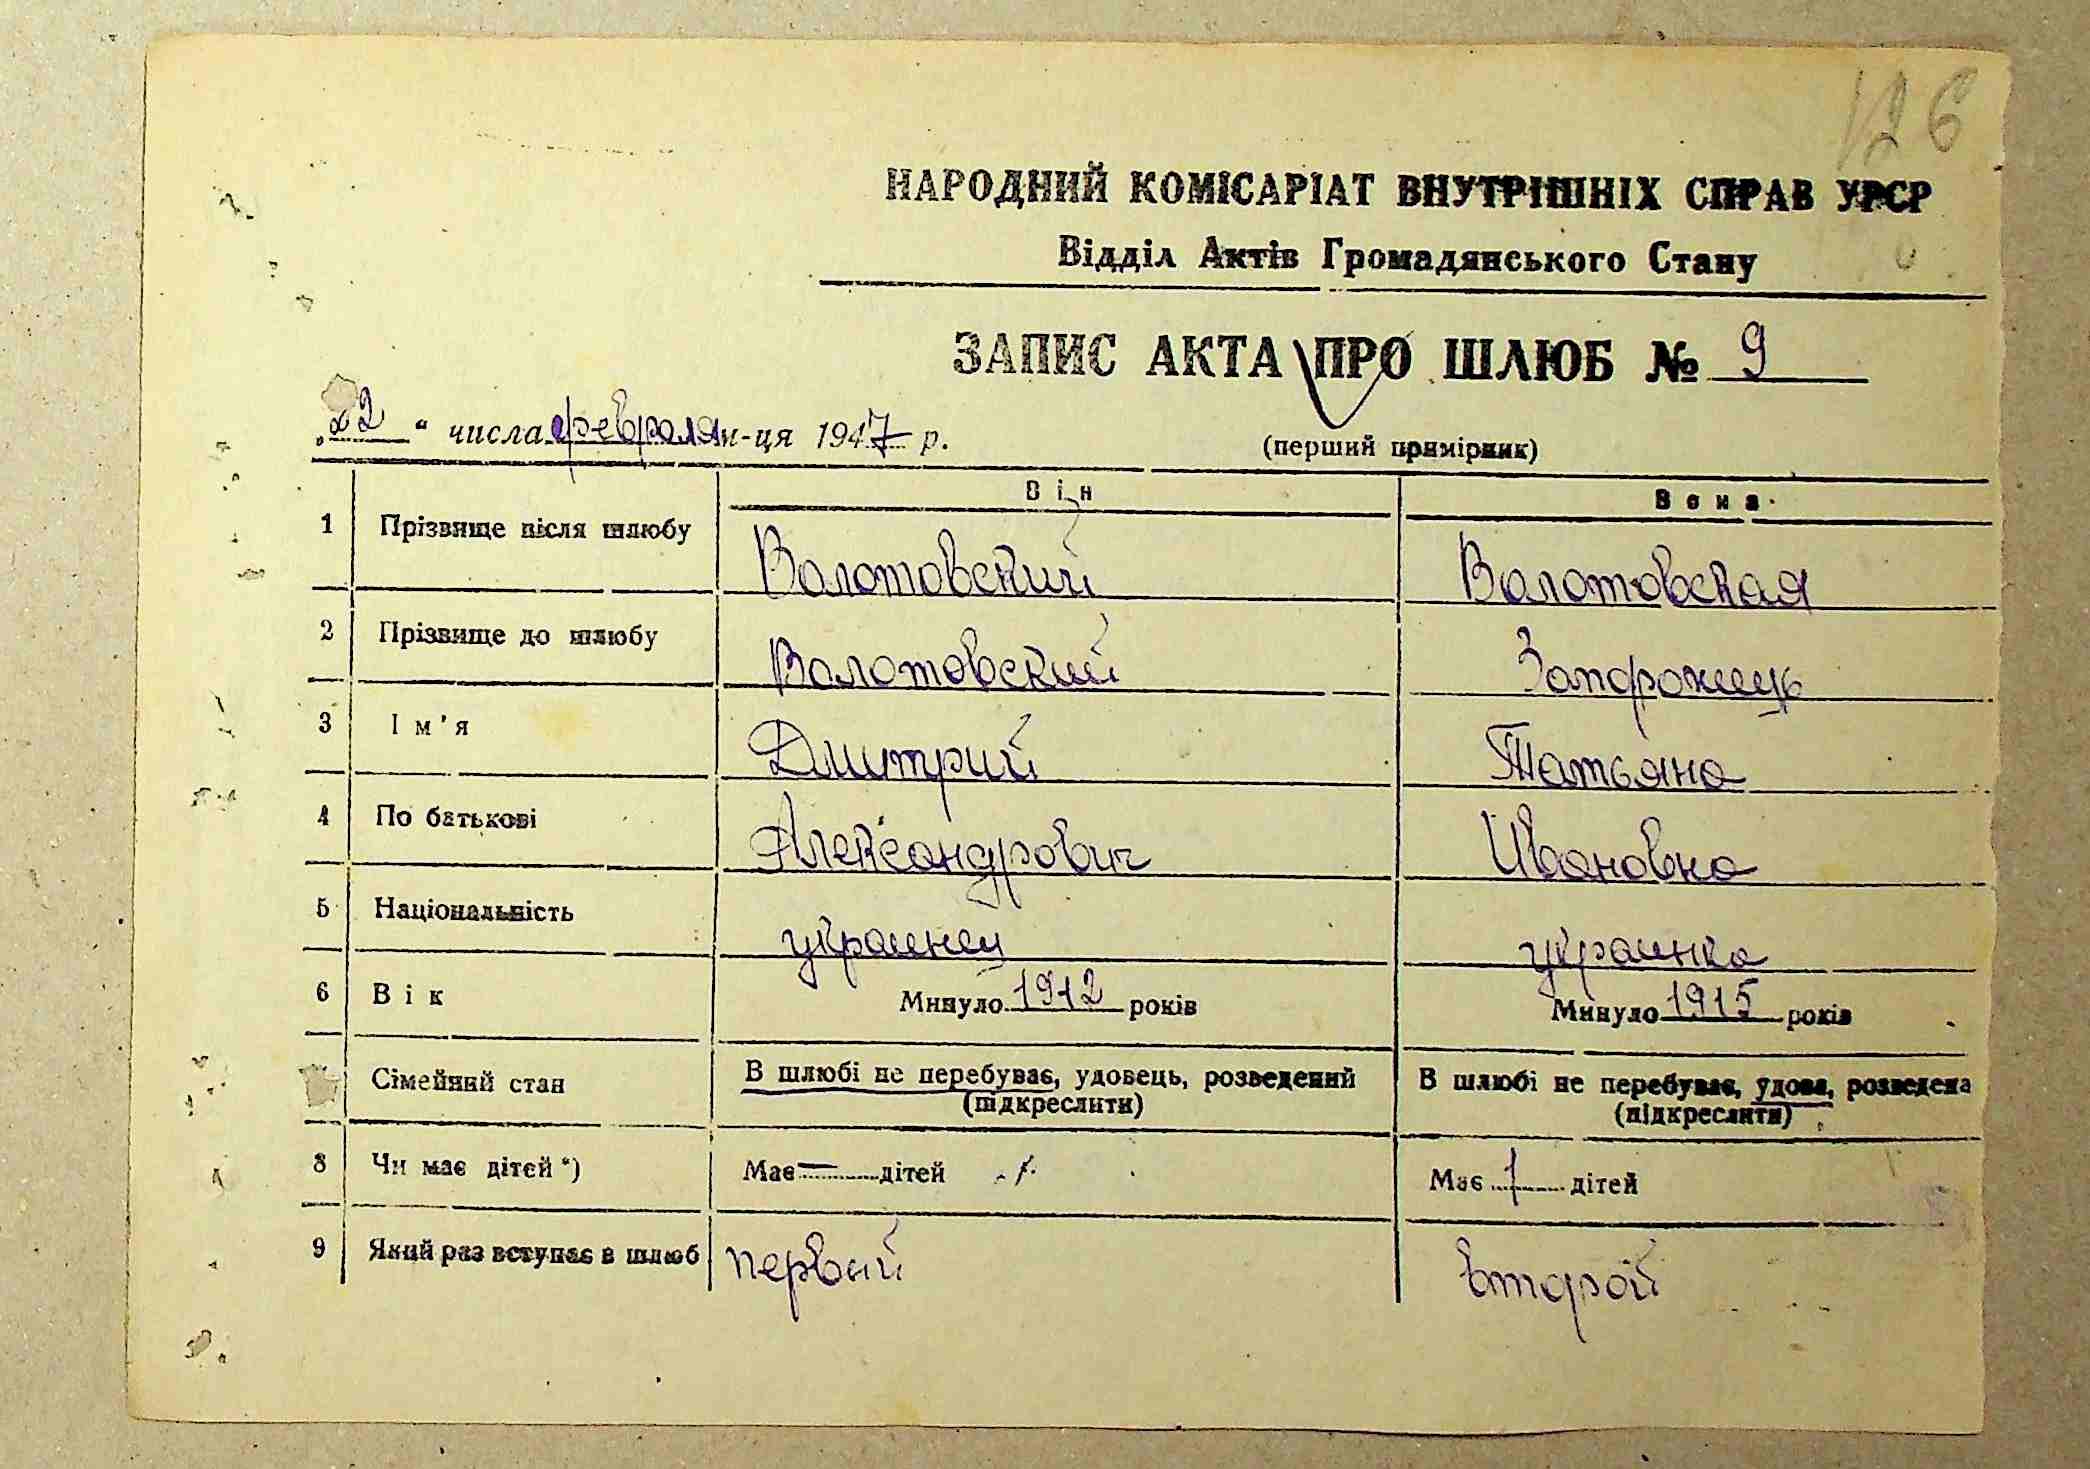 126
НАРОДНИЙ КОМІСАРІАТ ВНУТРІШНІХ СПРАВ УРСР
Відділ Актів Громадянського Стану
ЗАПИС АКТА ПРО ШЛЮБ № 9
„22" числа февраля м-ця 1947 р.
(перший примірник)
Він Вона
1 Прізвище після шлюбу Волотовский Волотовская
2 Прізвище до шлюбу Волотовский Запорожець
3 Ім'я Дмитрий Татьяна
4 По батькові Александрович Ивановна
5 Національність украинец украинка
6 Вік Минуло 1912 років Минуло 1915 років
Сімейний стан В шлюбі не перебуває, удовець, розведений В шлюбі не перебуває, удова, розведена
(підкреслити) (підкреслити)
8 Чи має дітей *) Має — дітей Має 1 дітей
9 Який раз вступає в шлюб первый второй